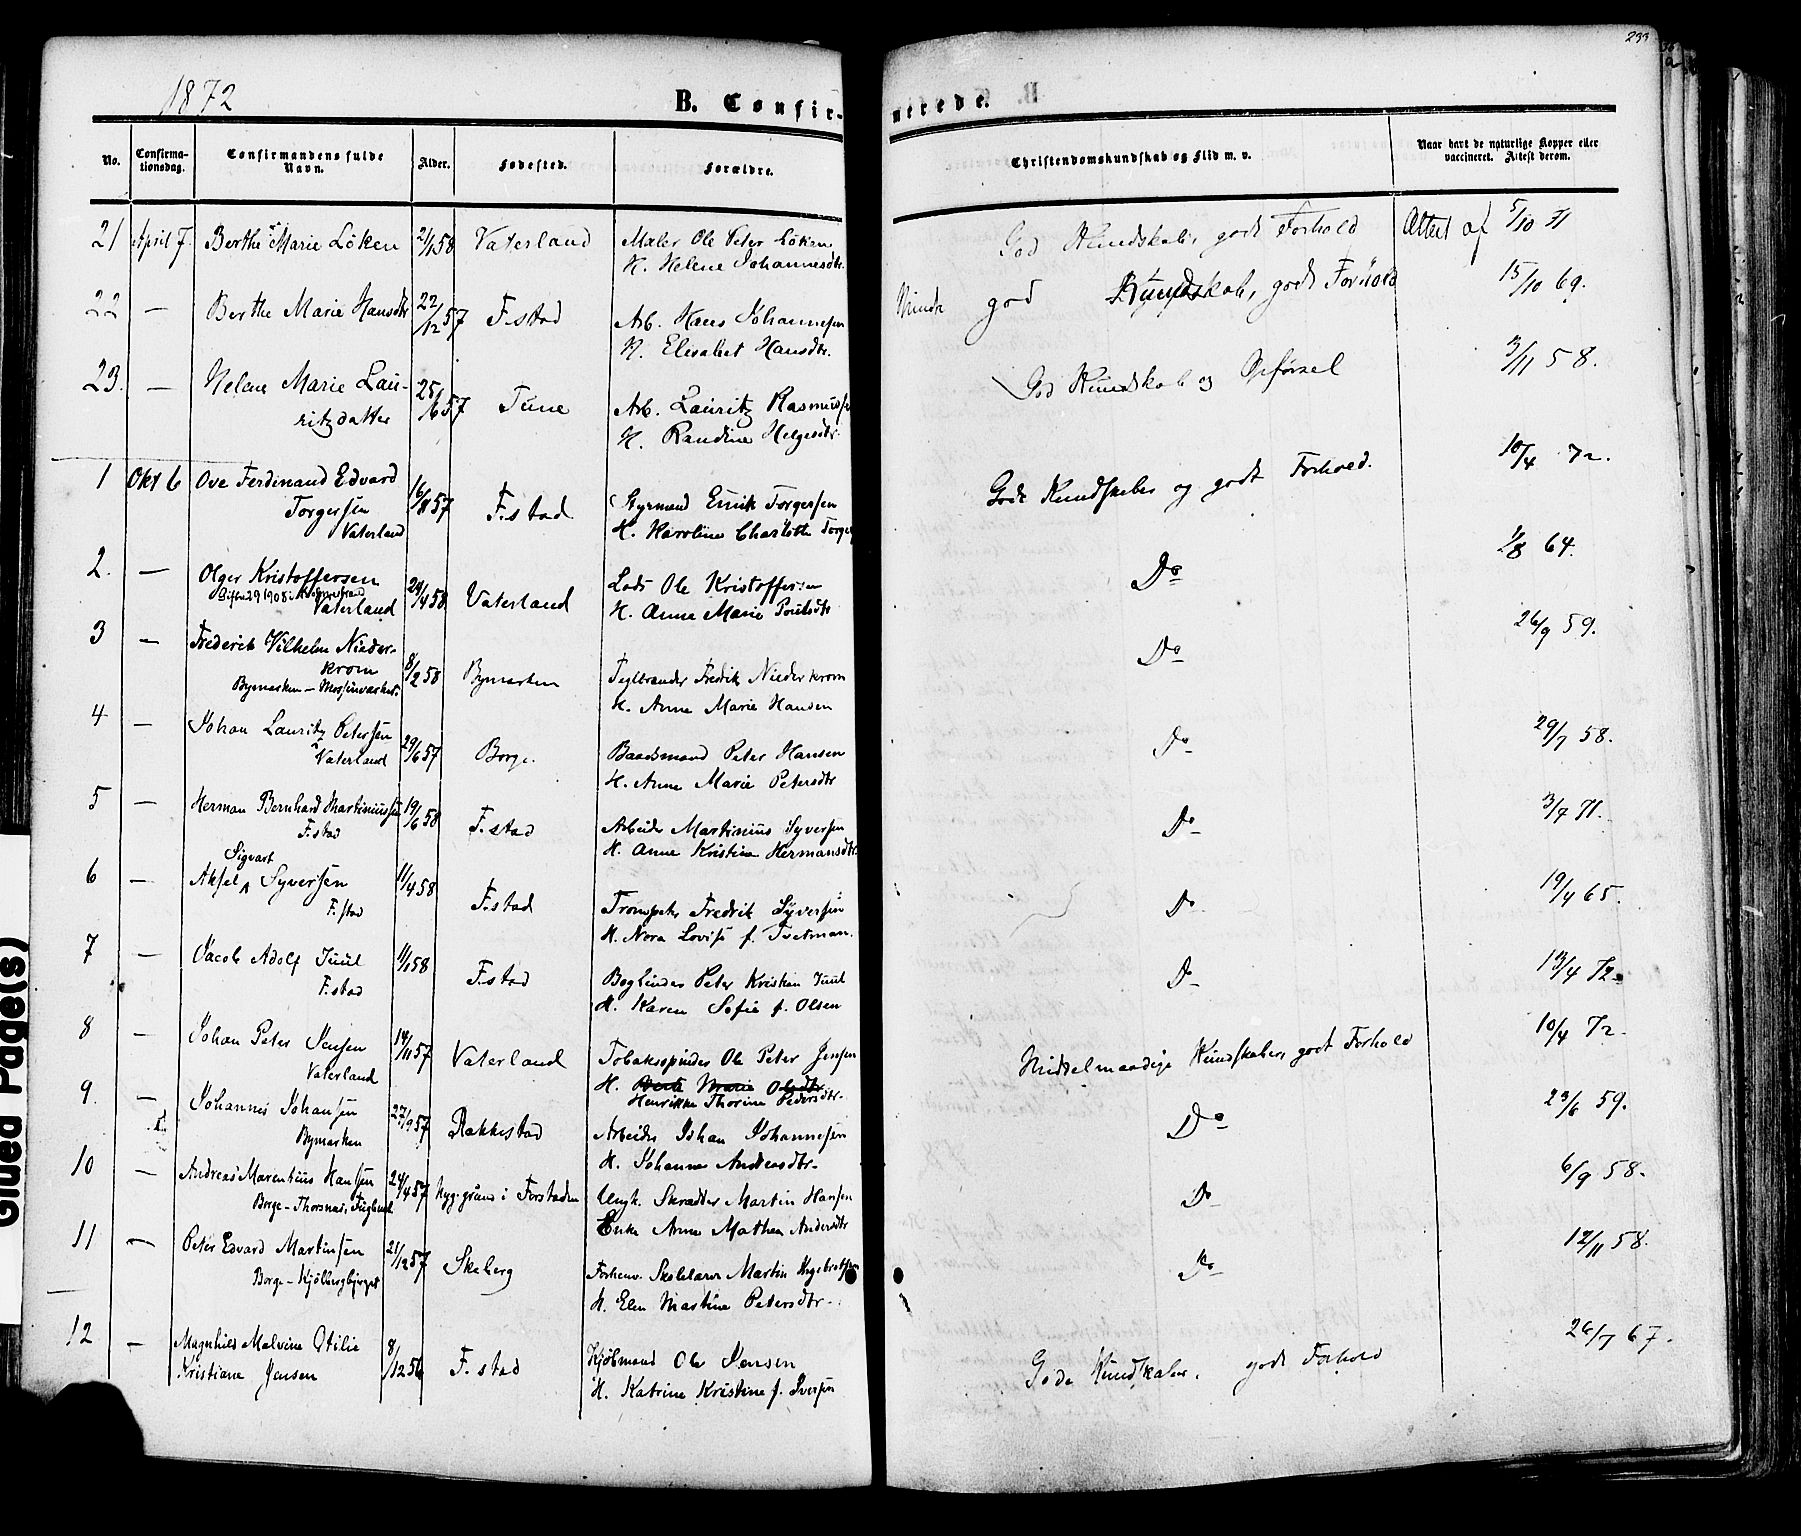 233
1872
B. Confirmerede.
No. Confirmationsdag. Confirmandens fulde Navn. Alder. Fødested. Forældre. Christendomskundskab og Flid m. v. Naar havt de naturlige Kopper eller vaccineret. Attest derom.
21 April 7. Berthe Marie Löken 2/1 58 Vaterland Maler Ole Peter Löken God Kundskab, godt Forhold Attest af 5/10 71
H. Helene Johannesdtr.
22 — Berthe Marie Hansdtr 22/12 57 F.stad Arb. Hans Johannesen Mindre god Kundskab, godt Forhold 15/10 69.
H. Elisabet Hansdtr.
23. — Helene Marie Lau- 25/6 57 Tune Arb. Lauritz Rasmussen God Kundskab og Opførsel 3/11 58.
ritzdatter H. Randine Helgesdtr.
1 Okt 6 Ove Ferdinand Edvard 16/11 57 F.stad Styrmand Emik Torgersen Gode Kundskaber og godt Forhold. 10/4 72.
Torgersen H. Karoline Charlotte Torgers
Vaterland
2. — Olger Kristoffersen 24/4 58 Vaterland Lods Ole Kristoffersen Do 1/8 64.
Vaterland H. Anne Marie Poulsdtr
3 — Frederik Vilhelm Nieder- 8/2 58 Bymarken Teglbrænder Fredik Niederkrom Do 26/9 59.
krom H. Anne Marie Hansen
Bymarken — Mosseinvæsket.
4 — Johan Lauritz Petersen 29/6 57 Borge. Baadsmand Peter Hansen Do 29/7 58.
Vaterland H. Anne Marie Petersdtr
5 — Herman Bernhard Martiniussen 19/6 58 F.stad Arbeider Martinius Syversen Do 3/7 71.
F.stad H. Anne Kristine Hermansdtr.
Sigvart
6 — Aksel ^ Syversen 11/4 58 F.stad Trompeter Fredrik Syversen Do 19/4 65.
F.stad H. Nora Lovise f. Tvetman.
7 — Jacob Adolf Juul 11/1 58 F.stad Bogbinder Peter Kristian Juul Do 13/4 72.
F.stad H. Karen Sofie f. Olsen
8 — Johan Peter Jensen 14/11 57 Vaterland Tobaksspinder Ole Peter Jensen Middelmaadige Kundskaber, godt Forhold 10/4 72.
Vaterland H. Berte Marie Olsdtr
Henrikke Thorine Pedersdtr.
9. — Johannes Johansen 27/9 57 Rakkestad Arbeider Johan Johannesen Do 23/6 59.
Bymarken H. Johanne Andersdtr.
10 — Andreas Marentius Hansen 24/4 57 Byg.grund i Forstaden Ungk. Skrædder Martin Hansen Do 6/9 58.
Borge — Thorsnæs, Teglverk Enke Anne Mathea Andersdtr
11 — Peter Edvard Martinsen 21/12 57 Skeberg Forhenv. Skolelærer Martin Ingebretsen Do 12/11 58.
Borge — Kjölbergbjerget H. Elen Martine Petersdtr.
12 — Magnhild Malvine Otilie 8/12 56 F.stad Kjöbmand Ole Jensen Gode Kundskaber, godt Forhold 26/7 67.
Kristiane Jensen H. Katrine Kristine f. Iversen
Glued Page(s)